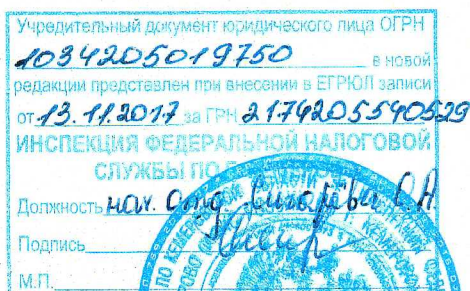 Учредительный документ юридического лица ОГРН
1034205019750 в новой
редакции представлен при внесении в ЕГРЮЛ записи
от 13.11.2017 за ГРН 2174205540529
ИНСПЕКЦИЯ ФЕДЕРАЛЬНОЙ НАЛОГОВОЙ
СЛУЖБЫ ПО
Должность нач. отд.
Подпись
М.П.